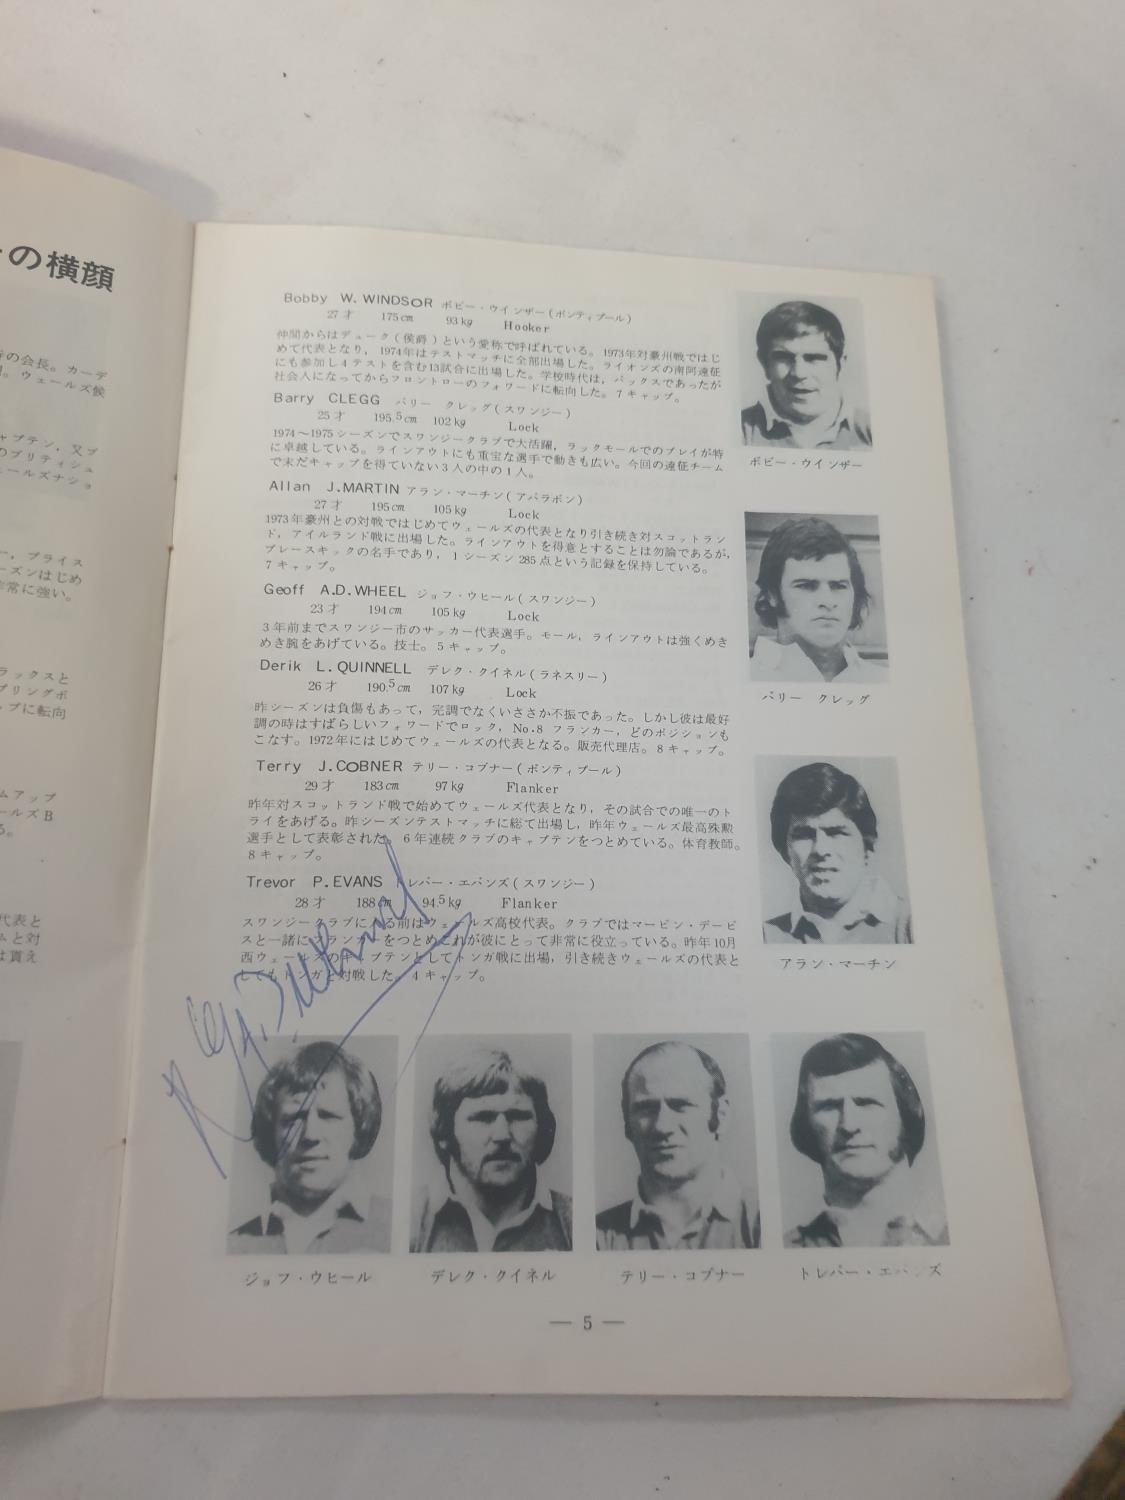 の横顔
の会長。カーデ
。ウェールズ候
ャプテン，又ブ
のブリティシュ
ェールズナショ
ー，プライス
ーズンはじめ
非常に強い。
ラックスと
プリングボ
ップに転向
ムアップ
ールズB
る。
代表と
ムと対
は貰え
Bobby W. WINDSOR ボビー・ウインザー(ポンティプール)
27才 175cm 93kg Hooker
仲間からはデューク(侯爵)という愛称で呼ばれている。1973年対豪州戦ではじ
めて代表となり，1974年はテストマッチに全部出場した。ライオンズの南阿遠征
にも参加し4テストを含む13試合に出場した。学校時代は，バックスであったが
社会人になってからフロントローのフォワードに転向した。7キャップ。
Barry CLEGG バリー クレッグ(スワンジー)
25才 195.5cm 102kg Lock
1974〜1975シーズンでスワンジークラブで大活躍，ラックモールでのプレイが特
に卓越している。ラインアウトにも重宝な選手で動きも広い。今回の遠征チーム
で未だキャップを得ていない3人の中の1人。
Allan J.MARTIN アラン・マーチン(アバラボン)
27才 195cm 105kg Lock
1973年豪州との対戦ではじめてウェールズの代表となり引き続き対スコットラン
ド，アイルランド戦に出場した。ラインアウトを得意とすることは勿論であるが，
プレースキックの名手であり，1シーズン285点という記録を保持している。
7キャップ。
Geoff A.D.WHEEL ジョフ・ウヒール(スワンジー)
23才 194cm 105kg Lock
3年前までスワンジー市のサッカー代表選手。モール，ラインアウトは強くめき
めき腕をあげている。技士。5キャップ。
Derik L. QUINNELL デレク・クイネル(ラネスリー)
26才 190.5cm 107kg Lock
昨シーズンは負傷もあって，完調でなくいささか不振であった。しかし彼は最好
調の時はすばらしいフォワードでロック，No.8 フランカー，どのポジションも
こなす。1972年にはじめてウェールズの代表となる。販売代理店。8キャップ。
Terry J.COBNER テリー・コブナー(ポンティプール)
29才 183cm 97kg Flanker
昨年対スコットランド戦で始めてウェールズ代表となり，その試合での唯一のト
ライをあげる。昨シーズンテストマッチに総て出場し，昨年ウェールズ最高殊勲
選手として表彰された。6年連続クラブのキャプテンをつとめている。体育教師。
8キャップ。
Trevor P.EVANS トレバー・エバンズ(スワンジー)
28才 188cm 94.5kg Flanker
スワンジークラブに入る前はウェールズ高校代表。クラブではマービン・デービ
スと一諸にフランカーをつとめこれが彼にとって非常に役立っている。昨年10月
西ウェールズのキャプテンとしてトンガ戦に出場，引き続きウェールズの代表と
してもトンガと対戦した。4キャップ。
ボビー・ウインザー
バリー クレッグ
アラン・マーチン
ジョフ・ウヒール
デレク・クイネル
テリー・コブナー
トレバー・エバンズ
— 5 —